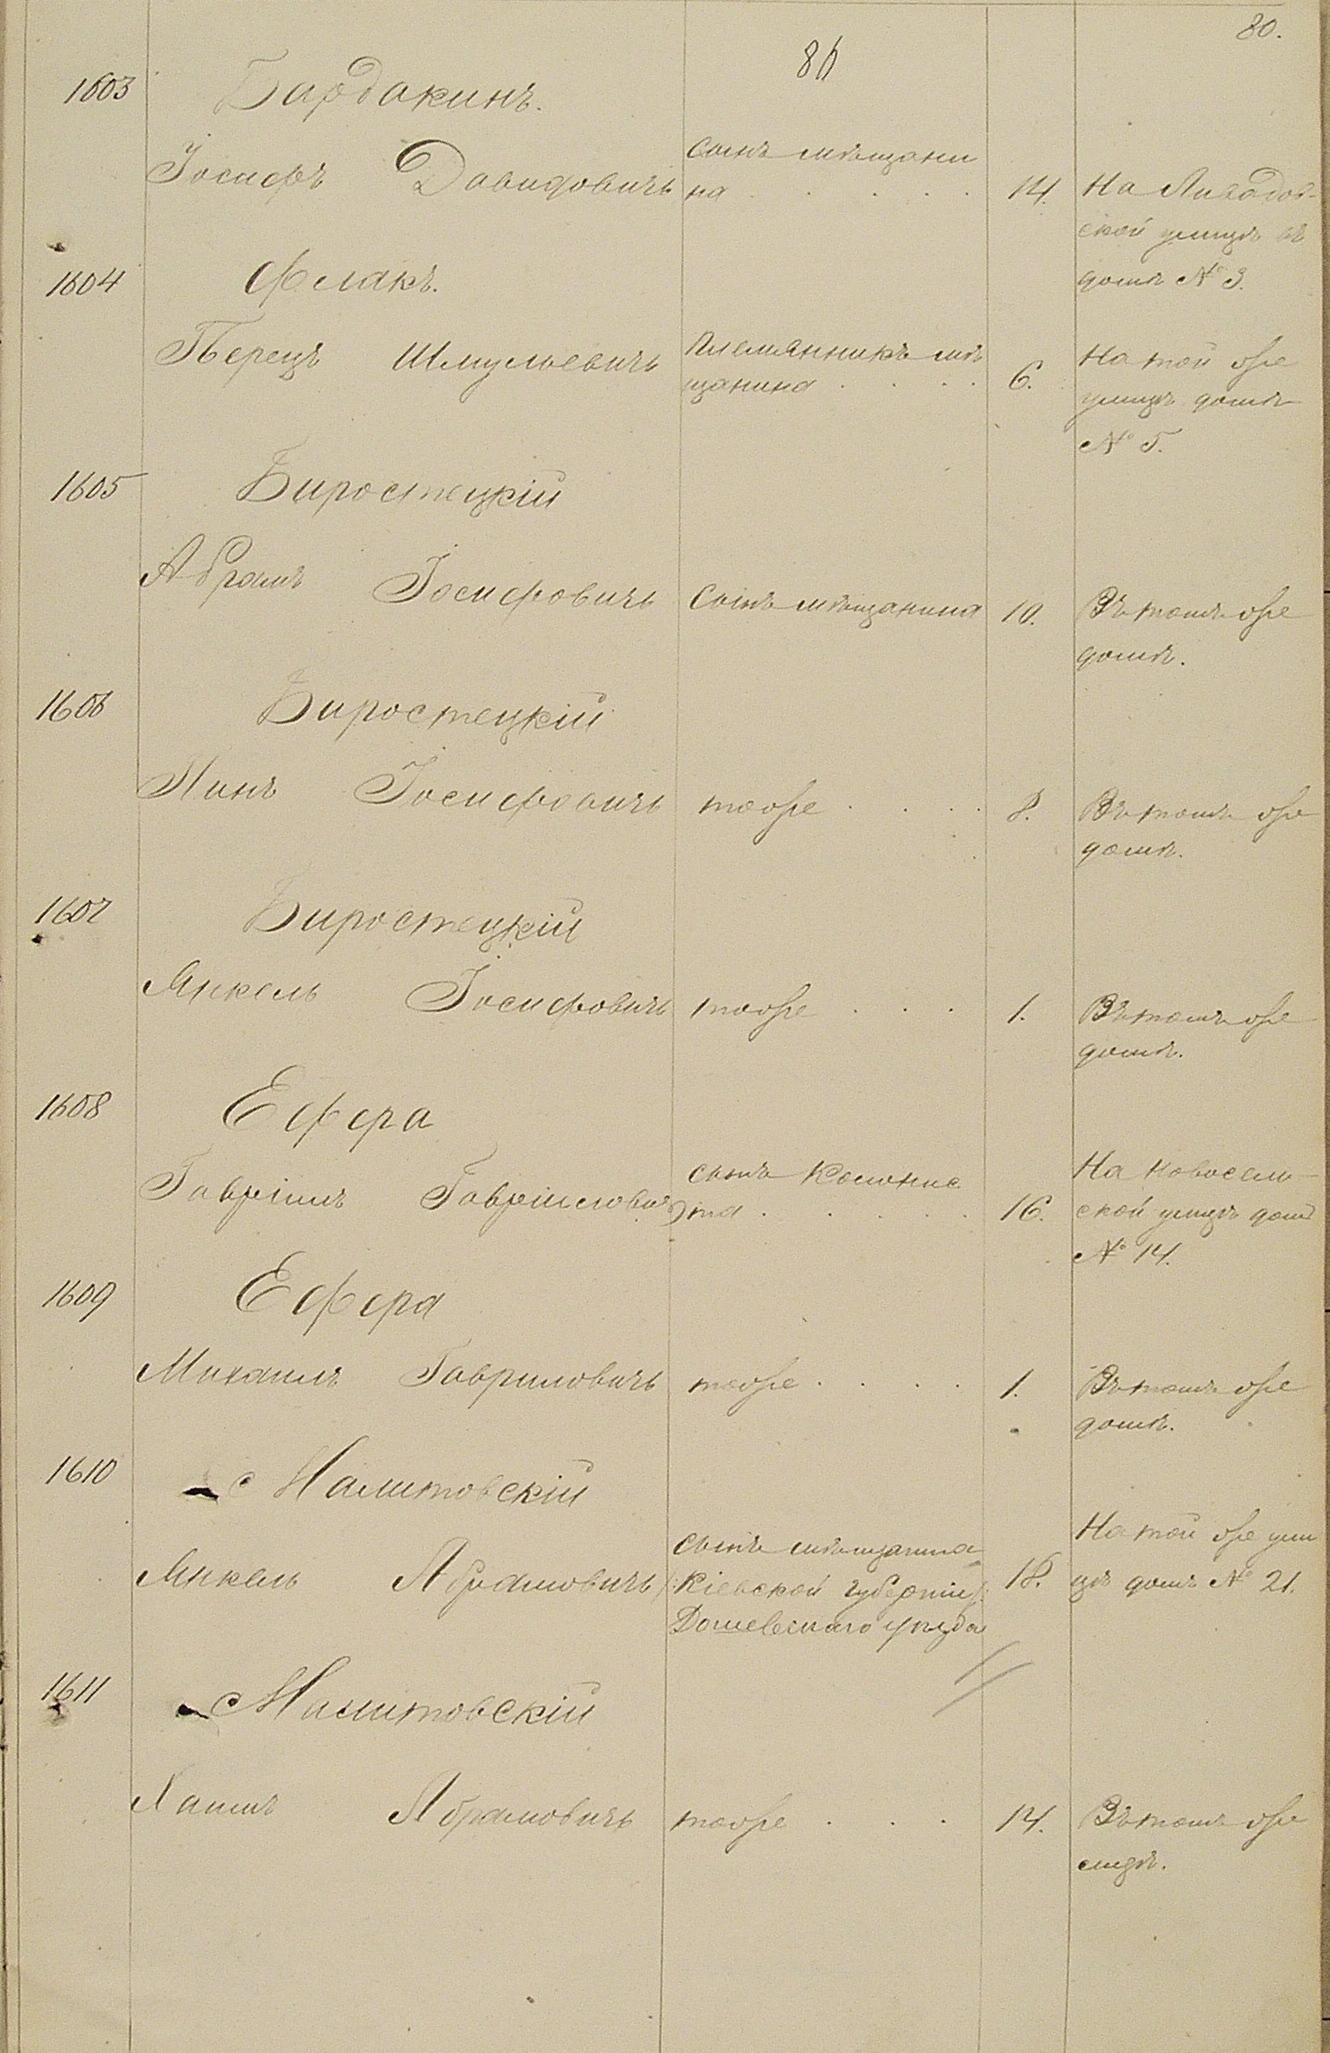 80.
80
1603 Бардакинъ.
Іосифъ Давидовичъ
сынъ мѣщани
на . . . .
14.
На
ской улицѣ въ
домѣ № 3.
1604 Флакъ.
Перецъ Шмульевичъ
племянникъ мѣ
щанина . . . .
6.
На той же
улицѣ домъ
№ 5.
1605 Биростецкій
Абрамъ Іосифовичъ
сынъ мѣщанина
10.
Въ томъ же
домѣ.
1606 Биростецкій
Іосифовичъ
тоже . . . .
8.
Въ томъ же
домѣ.
1607 Биростецкій
Янкель Іосифовичъ
тоже . . .
1.
Въ томъ же
домѣ.
1608 Ефера
Гавріилъ Гавріиловичъ
сынъ колонис
та . . . . .
16.
На Новосель
ской улицѣ домъ
№ 14.
1609 Ефера
Михаилъ Гавриловичъ
тоже . . . .
1.
Въ томъ же
домѣ.
1610 Малитовскій
Янкель Абрамовичъ
сынъ мѣщанина
Кіевской губерніи
уѣзда
18.
На той же ули
цѣ домъ № 21.
1611 Малитовскій
Хаимъ Абрамовичъ
тоже . . .
14.
Въ томъ же